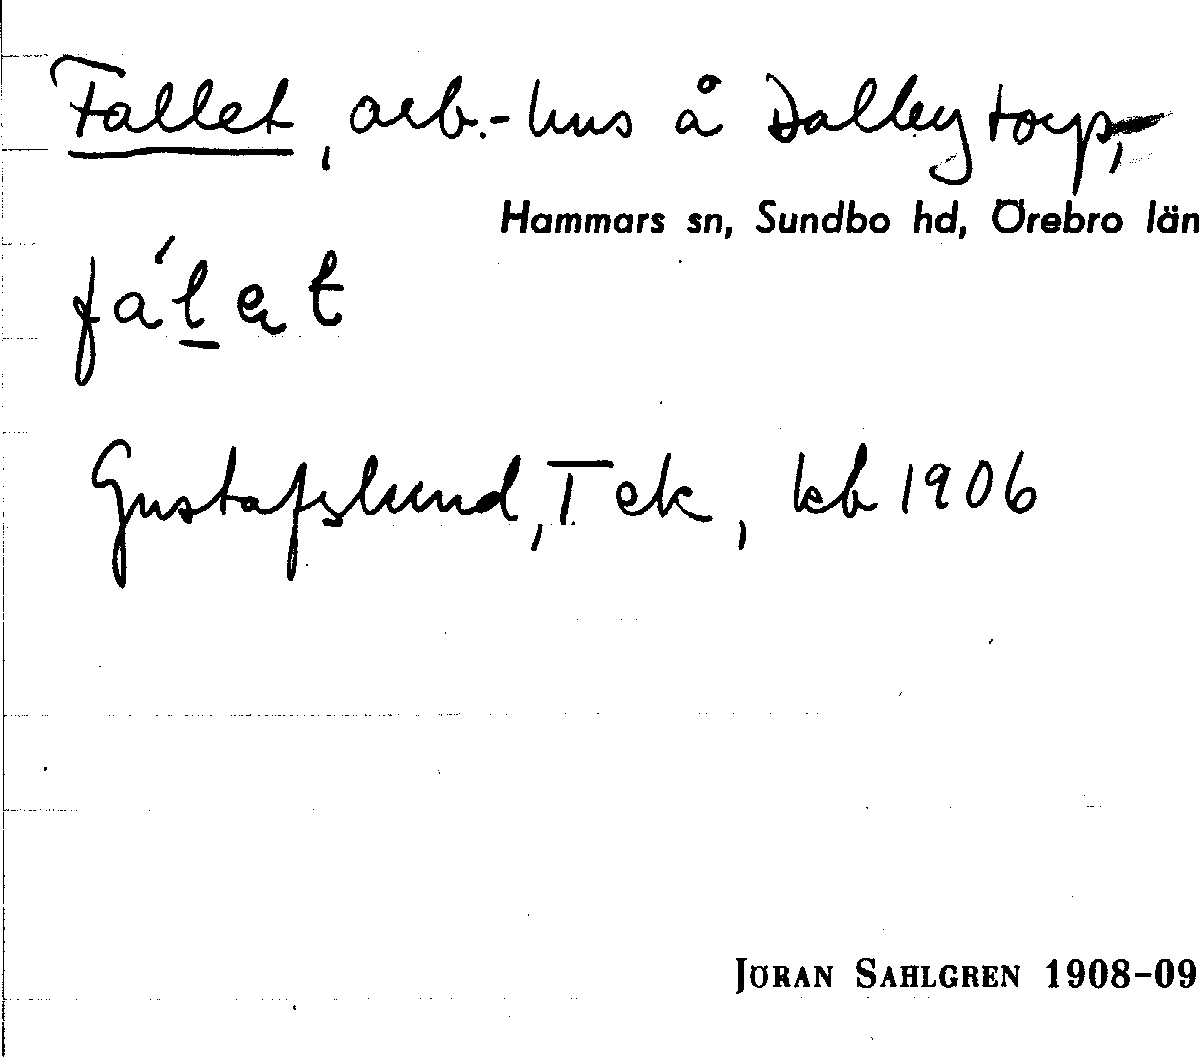 Fallet, arb.-hus å Dalbytorp,
Hammars sn, Sundbo hd, Örebro län
fál̲et
Gustafslund, T ek, kb 1906
JÖRAN SAHLGREN 1908-09